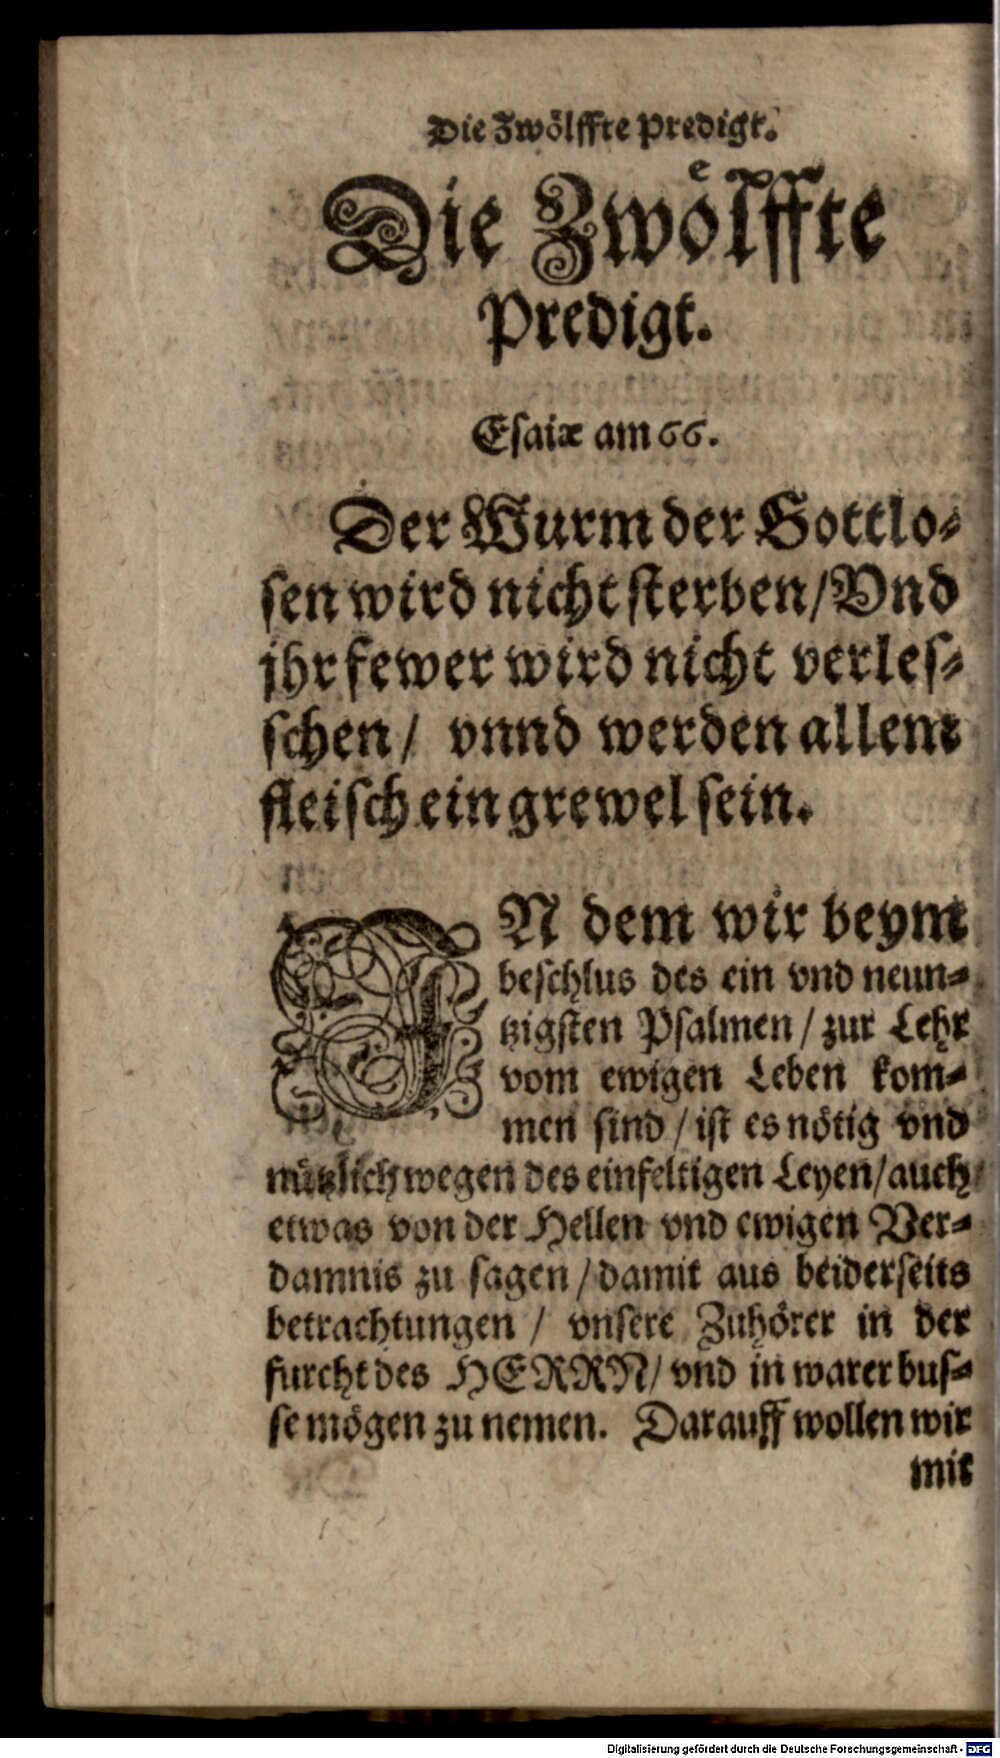 Die Zwölffte Predigt.
Die Zwoͤlffte
Predigt.
Esaiæ am 66.
Der Wurm der Gottlo-
sen wird nicht sterben/Vnd
jhr fewer wird nicht verles-
schen/ vnnd werden allem
fleisch ein grewel sein.
IN dem wir beym
beschlus des ein vnd neun-
tzigsten Psalmen/ zur Lehr
vom ewigen Leben kom-
men sind/ ist es nötig vnd
nützlich wegen des einfeltigen Leyen/auch
etwas von der Hellen vnd ewigen Ver-
damnis zu sagen/damit aus beiderseits
betrachtungen/ vnsere Zuhörer in der
furcht des HERRN/ vnd in warer bus-
se mögen zu nemen. Darauff wollen wir
mit
Digitalisierung gefördert durch die Deutsche Forschungsgemeinschaft - DFG